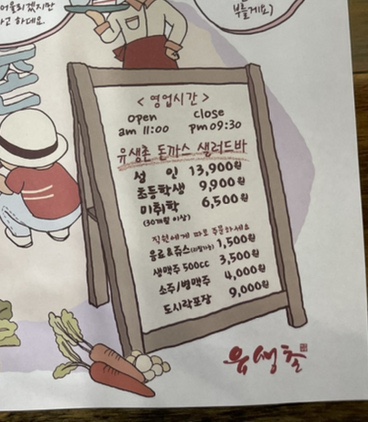 어울리겠지만
라고 하데요.
부를게요)
촌
< 영업시간 >
open close
am 11:00 pm 09:30
유생촌 돈까스 샐러드바
성 인 13,900원
초등학생 9,900원
미취학 6,500원
(30개월 이상)
직원에게 따로 주문하세요
음료&쥬스(리필가능) 1,500원
생맥주 500cc 3,500원
소주/병맥주 4,000원
도시락포장 9,000원
유생촌